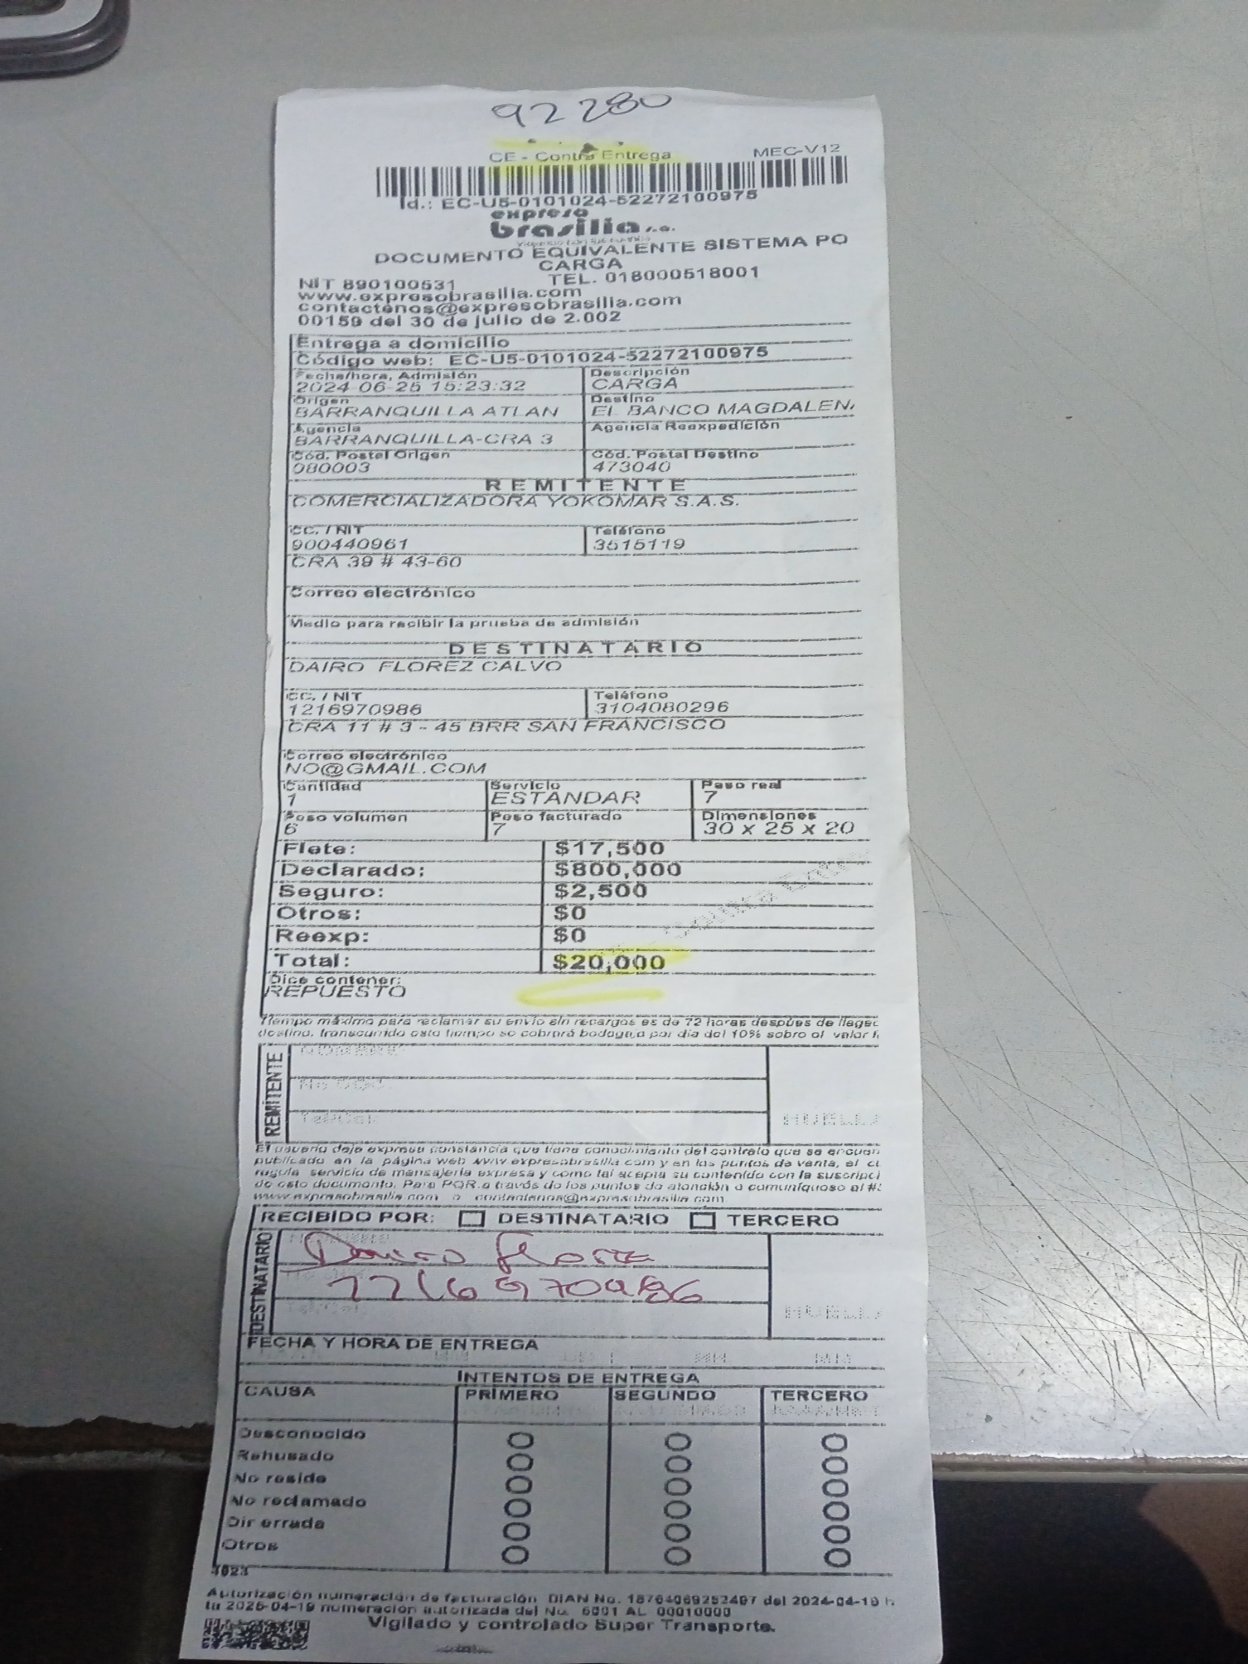 92280
CE - Contra Entrega MEC-V12
Id.: EC-U5-0101024-52272100975
expreso
brasilia s.a.
DOCUMENTO EQUIVALENTE SISTEMA PO
CARGA
NIT 890100531 TEL. 018000518001
www.expresobrasilia.com
contactenos@expresobrasilia.com
00159 del 30 de julio de 2.002
Entrega a domicilio
Código web: EC-U5-0101024-52272100975
Fecha/hora, Admisión Descripción
2024-06-25 15:23:32 CARGA
Origen Destino
BARRANQUILLA ATLAN EL BANCO MAGDALENA
Agencia Agencia Reexpedición
BARRANQUILLA-CRA 3
Cód. Postal Origen Cód. Postal Destino
080003 473040
REMITENTE
COMERCIALIZADORA YOKOMAR S.A.S.
CC. / NIT Teléfono
900440961 3515119
CRA 39 # 43-60
Correo electrónico
Medio para recibir la prueba de admisión
DESTINATARIO
DAIRO FLOREZ CALVO
CC. / NIT Teléfono
1216970986 3104080296
CRA 11 # 3 - 45 BRR SAN FRANCISCO
Correo electrónico
NO@GMAIL.COM
Cantidad Servicio Peso real
1 ESTANDAR 7
Peso volumen Peso facturado Dimensiones
6 7 30 x 25 x 20
Flete: $17,500
Declarado: $800,000
Seguro: $2,500
Otros: $0
Reexp: $0
Total: $20,000
Dice contener:
REPUESTO
Tiempo máximo para reclamar su envío sin recargos es de 72 horas despúes de llegad
destino, transcurrido este tiempo se cobrará bodegaje por día del 10% sobre el valor f
REMITENTE
NOMBRE
No CC
Teléfono
HUELLA
El usuario deja expresa constancia que tiene conocimiento del contrato que se encuen
publicado en la página web www.expresobrasilia.com y en los puntos de venta, el cu
regula servicio de mensajería expresa y como tal acepta su contenido con la suscripci
de este documento. Para PQR a través de los puntos de atención o comuníquese al #
www.expresobrasilia.com o contactenos@expresobrasilia.com
RECIBIDO POR: DESTINATARIO TERCERO
DESTINATARIO
Dairo Florez
1216970986
HUELLA
FECHA Y HORA DE ENTREGA
INTENTOS DE ENTREGA
CAUSA PRIMERO SEGUNDO TERCERO
Desconocido
Rehusado
No reside
No reclamado
Dir errada
Otros
4023
Autorización numeración de facturación DIAN No. 18764069252407 del 2024-04-19 h
ta 2026-04-19 numeracion autorizada del No. 5001 AL 00010000
Vigilado y controlado Super Transporte.